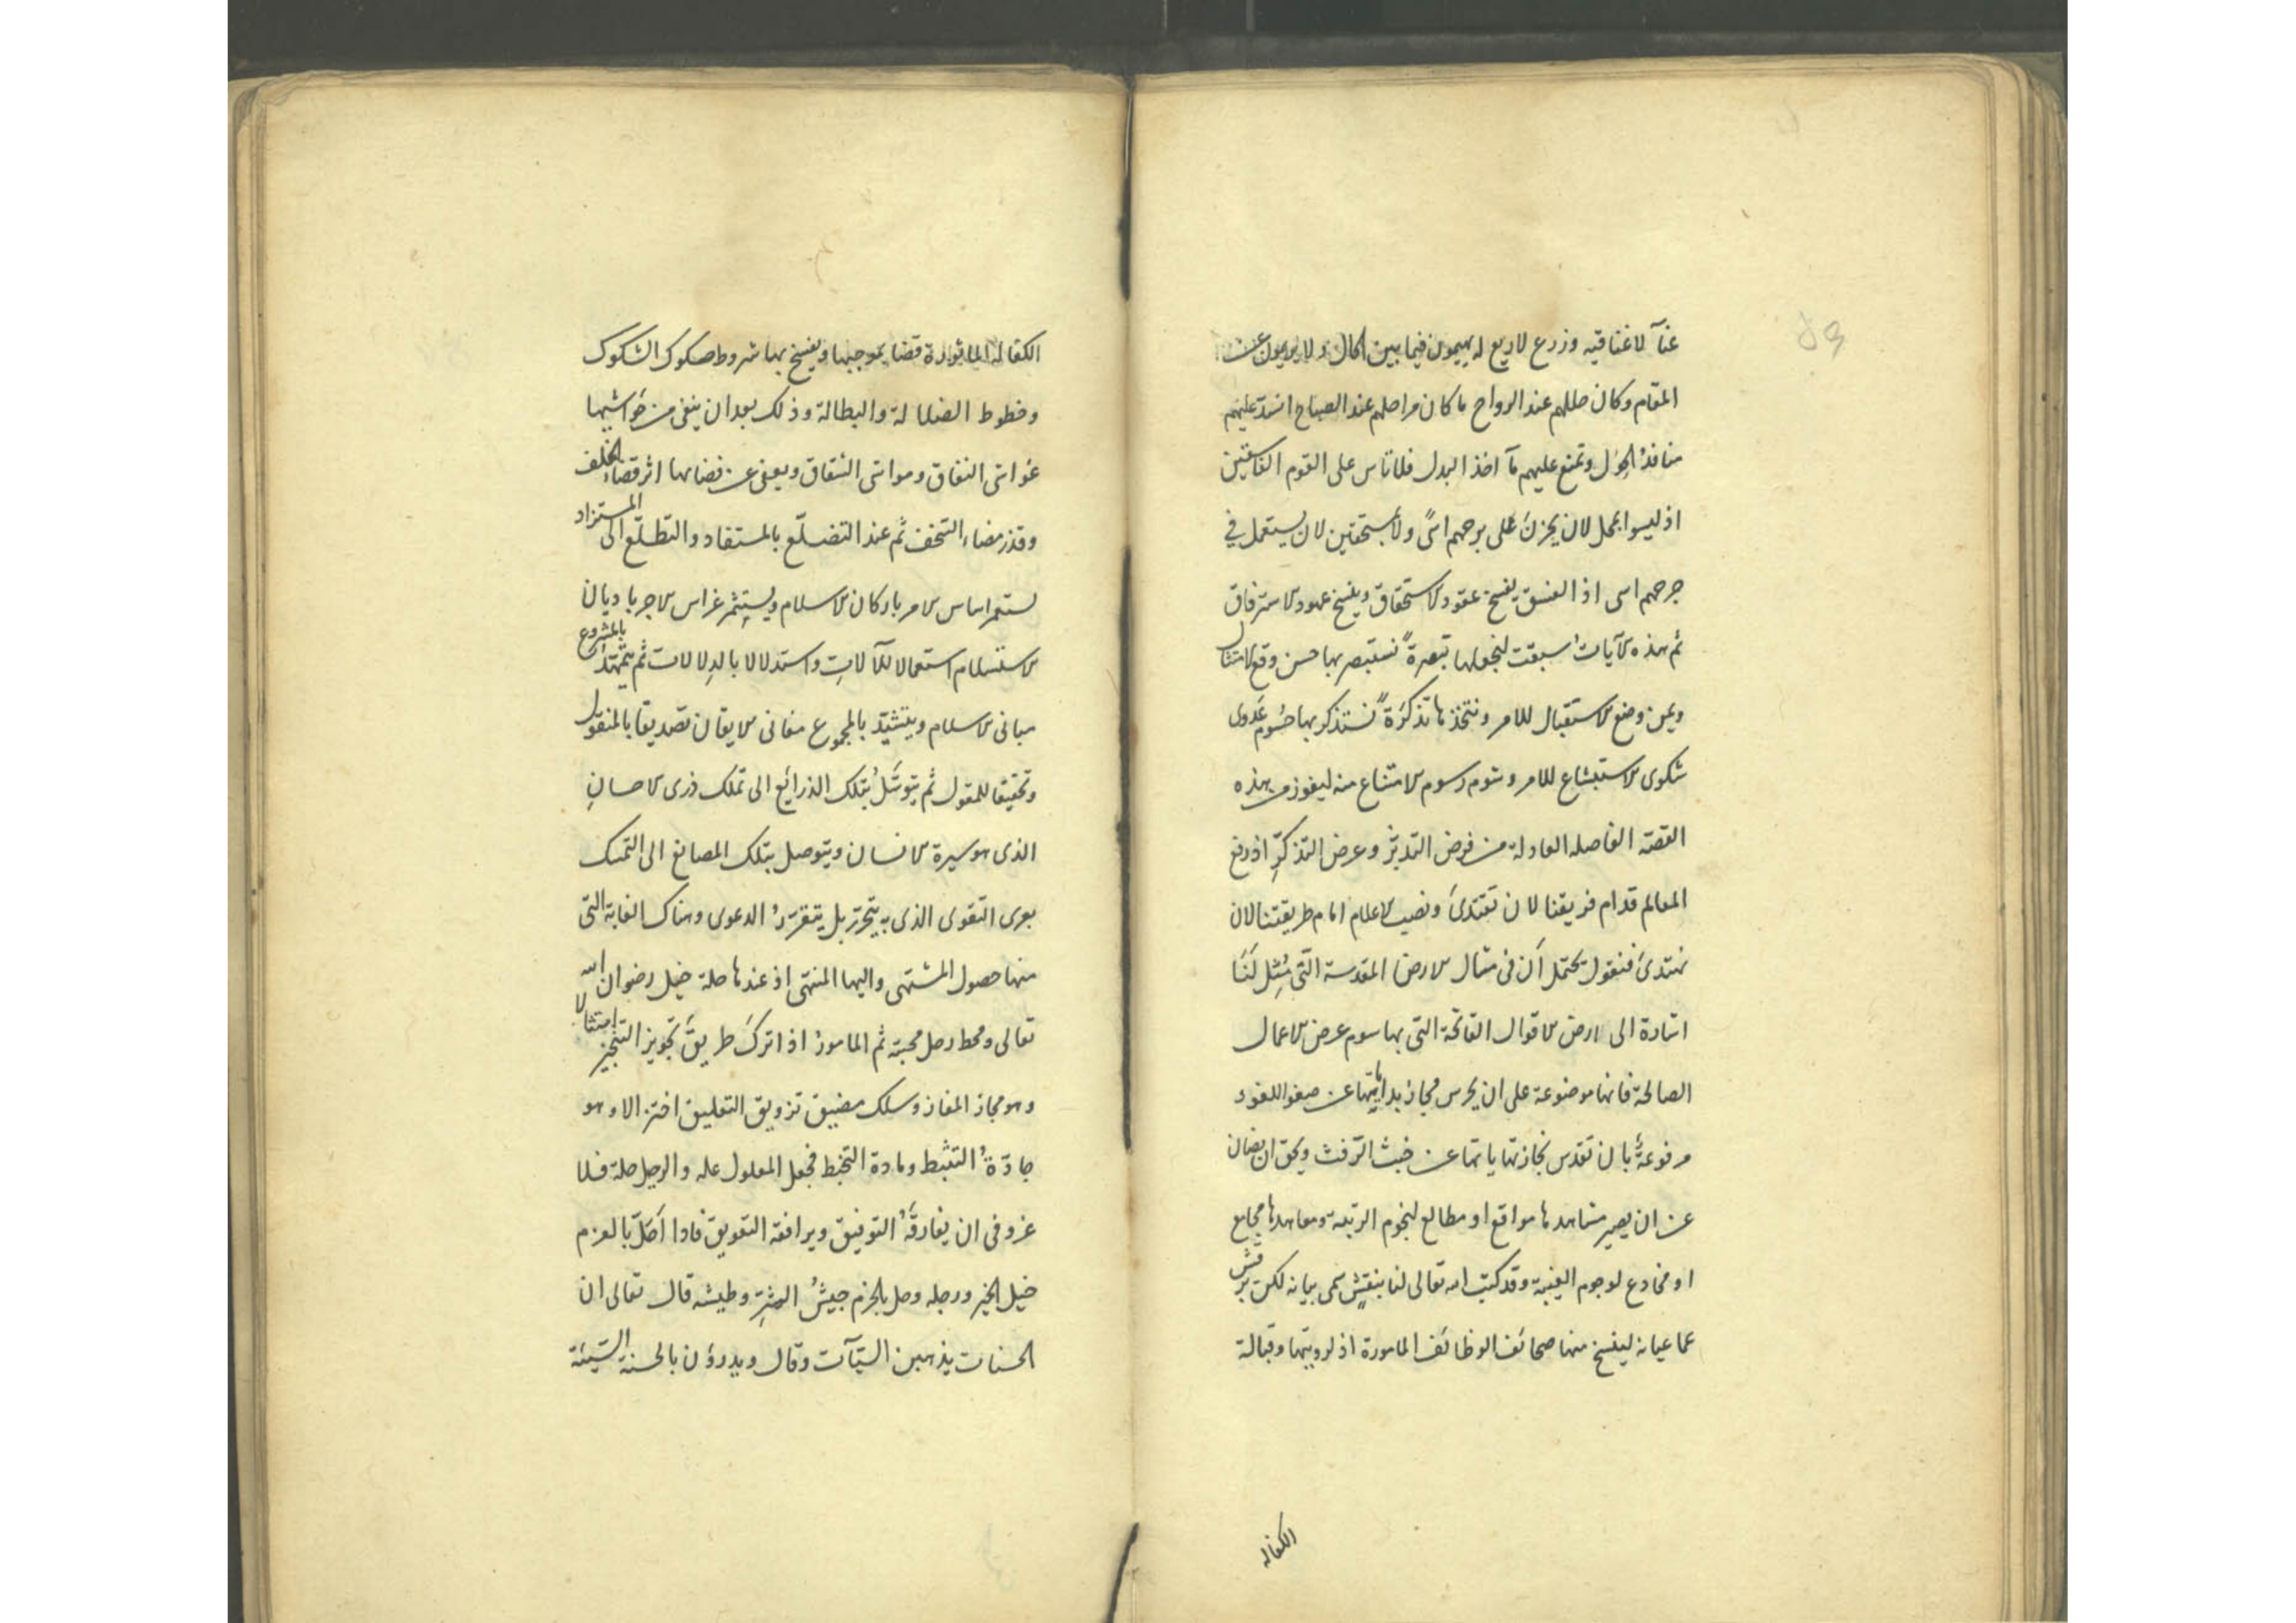 غنآ لا غنا فيه وزرع لا ريع له يهيمون فيما بين اكال ولا يريمون عن
المقام وكان حللهم عند الرواح ما كان مراحلهم عند الصباح انسد عليهم
منافذ الحِوَل وتمنع عليهم مآ اخذ البدل فلا تاس على القوم الفاسقين
اذ ليسوا بمحل لان يحزن على برحهم اسًى ولا بمستحقين لان يستعمل في
جرحهم اسى اذ الفسق يفسخ عقود الاستحقاق وينسخ عهود الاسترفاق
ثم هذه الآيات سيقت لنجعلها تبصرةً نستبصر بها حسن وقع الامتثال
ويمن وضع الاستقبال للامر ونتخذها تذكرَةً نستذكر بها حُسُوم عَدوى
شكوى الاستبشاع للامر وشوم رسوم الامتناع منه ليفوز من هذه
القصة الفاصله العادلة من فرض التدبّر وعرض التذكّرِ اذ رفع
المعالم قدام فريقنا لان نقتدىَ ونصب الاعلام امام طريقتنا لان
نهتدىَ فنقول يحتمل اَن فى مثال الارض المقدسة التى مُثِل لَنَا
اشارة الى ارض الاقوال الفاتحة التى بها سوم عرض الاعمال
الصالحة فانها موضوعة على ان يحرس مجاز بداياتها عن صغو اللغو و
مرفوعةٌ بان تقدس مجاز نهاياتها عن خبث الرّفث ويحق ان يصان
عن ان يصير مشاهدها مواقع او مطالع لنجوم الريبة ومعاهدها مجامع
او مخادع لوجوم الغيبة وقد كتب الله تعالى لنا بنقشٍ سمى بيانه لكن برقش
عما عيانه لينسخ منها صحائف الوظائف المامورة اذ لرويتها وقبالة
الكفاله
الكفالة الماثورة قضا بموجبها ويفسخ بها شروط صكوك الشكوك
وخطوط الضلالة والبطالة وذلك بعد ان ينفى من حَواشيها
غواشى النفاق ومواشى الشقاق ويعفى عن فضائها اثر قضاء الخلف
وقذر مضاء التخف ثم عند التضلّع بالمستفاد والتطلّع الى المستزاد
يستمر اساس الامر باركان الاسلام ويستثمر غراس الاجر باديان
الاستسلام استعمالا للآلاتِ واستدلالا بالدِلالات ثم يتمهّد بالمشروع
مبانى الاسلام ويتشيّد بالمجموع مغانى الايقان تصديقا بالمنقول
وتحقيقا للمقول ثم يتوسَّلُ بتلك الذرائع الى تملك ذرى الاحسانِ
الذى هو سيرة الانسان ويتوصل بتلك المصانع الى التمسك
بعرى التقوى الذى به يتحرّر بل يتقرّرُ الدعوى وهناك الغاية التى
منها حصول المشتهى واليها المنتهى اذ عندها حلة خيل رضوان الله
تعالى ومحط رحل محبته ثم المامورُ اذا تركَ طريقَ تجويز التنجيز امتثالا
وهو مجاز المفاز وسلك مضيق تزويق التعليق اختزالا وهو
جادّةُ التثبّط ومادة التخبط فجعل المعلول عله والرجل حلة فلا
غرو فى ان يفارقَهُ التوفيق ويرافقه التعويق فاذا اَخلّ بالعزم
خيل الخير ورجله وحل بالحزم جيشُ الشرّ وطيشه قال تعالى ان
الحسنات يذهبن السيّآت وقال ويدرؤن بالحسنة السّيئة